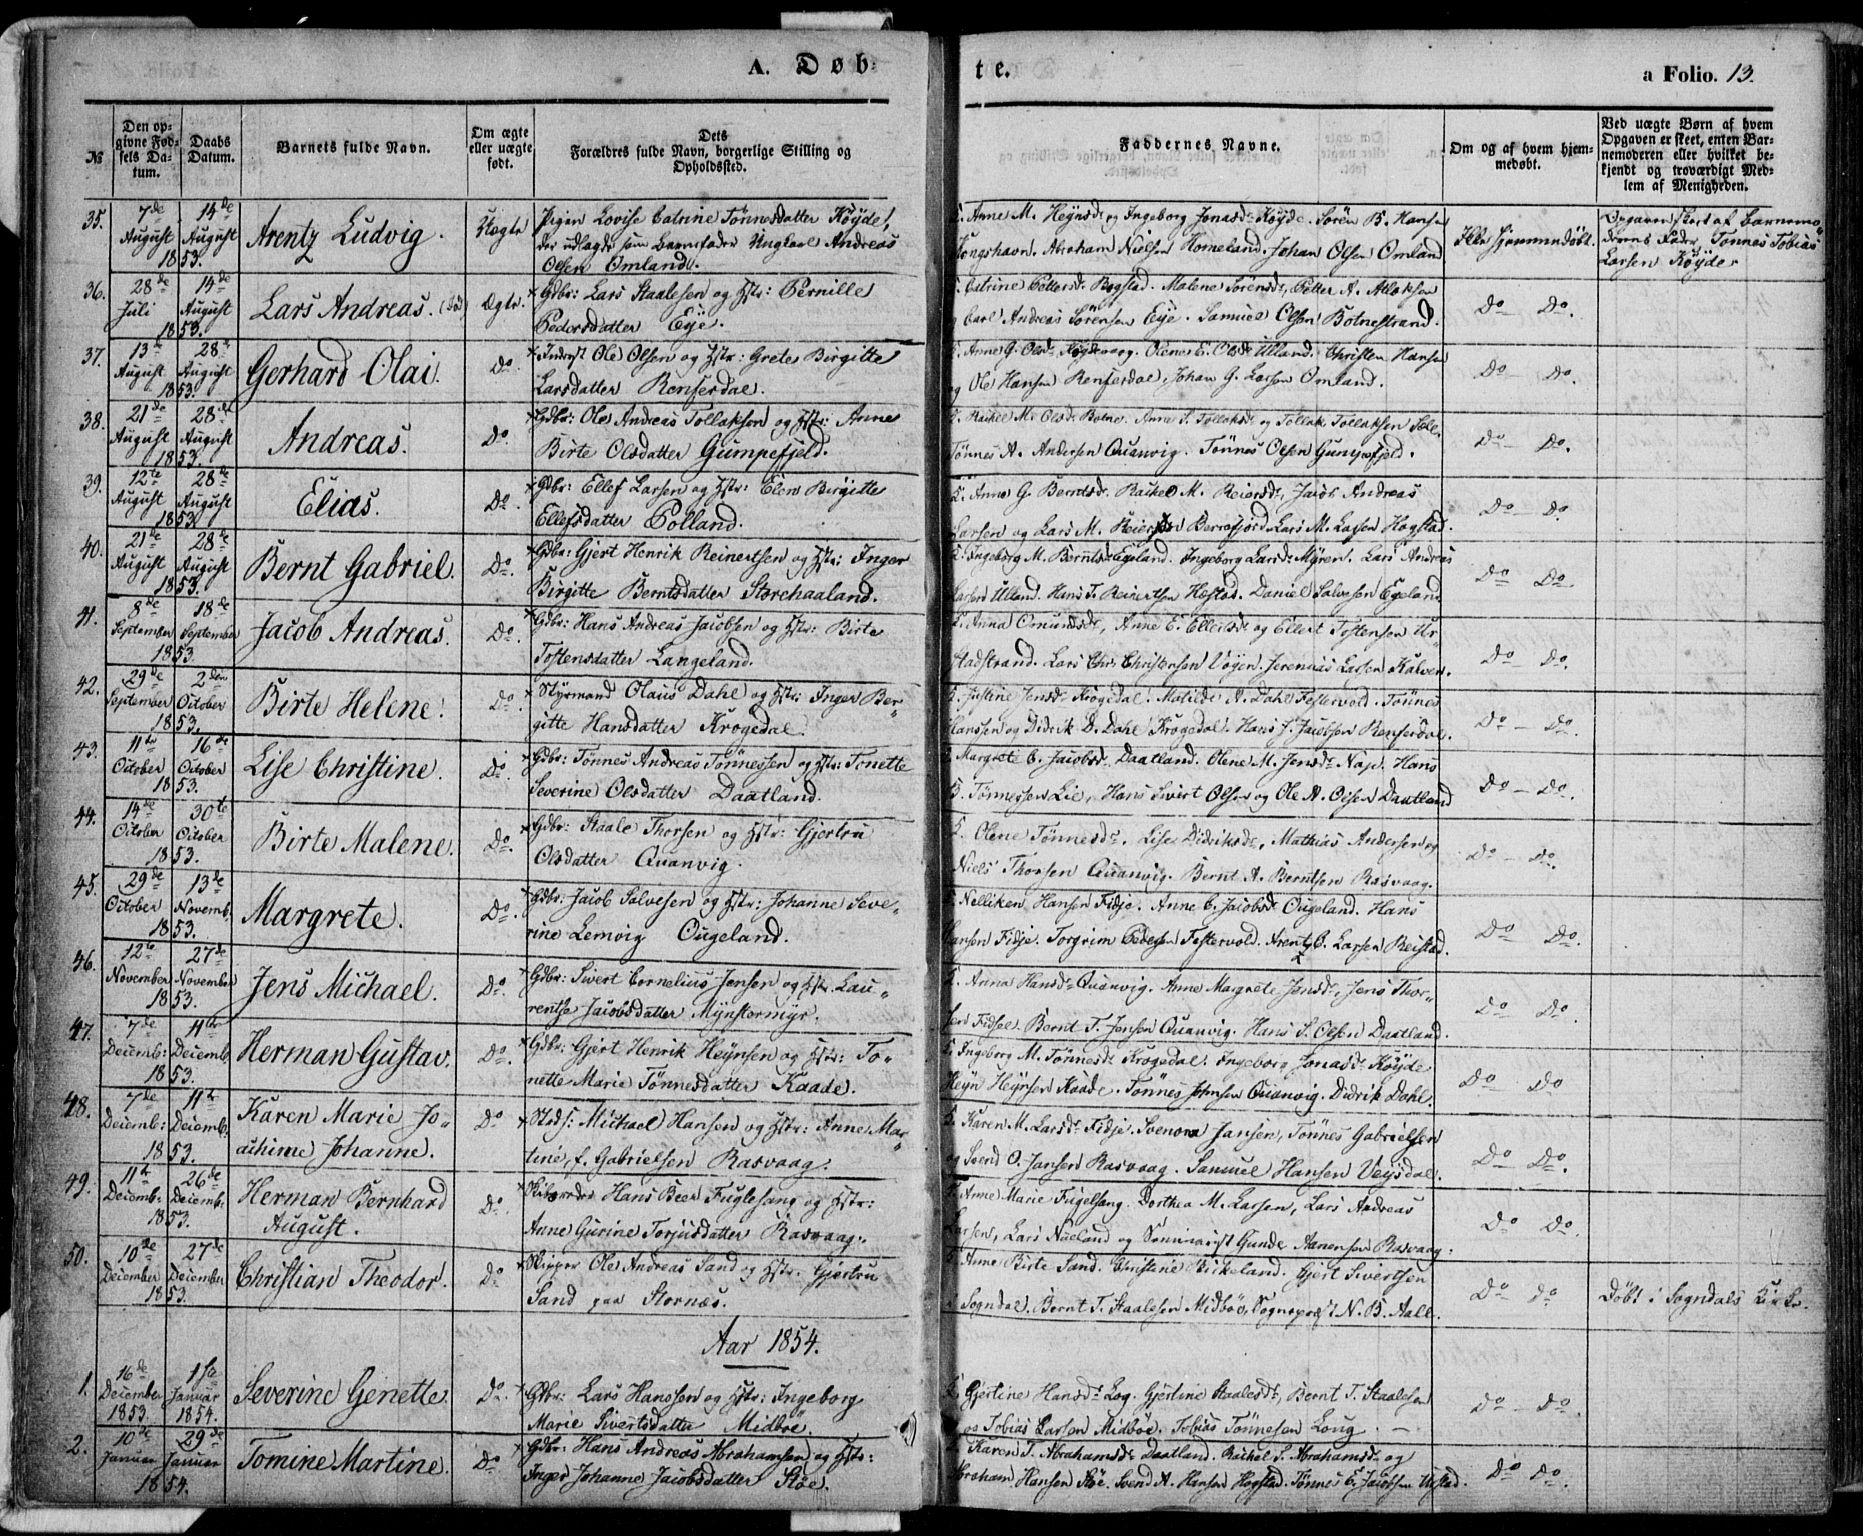 A. Døb-
te.
a Folio. 13.
№
Den op-
givne Fød-
sels Da-
tum.
Daabs
Datum.
Barnets fulde Navn.
Om ægte
eller uægte
født.
Dets
Forældres fulde Navn, borgerlige Stilling og
Opholdssted.
Faddernes Navne.
Om og af hvem hjem-
medøbt.
Ved uægte Børn af hvem
Opgaven er skeet, enten Bar-
nemoderen eller hvilket be-
kjendt og troværdigt Med-
lem af Menigheden.
35. 7de August 1853. 14de August Arentz Ludvig. Uægte Pigen Lovise Catrine Tönnesdatter Köyde,
der udlagde som Barnefader Ungkarl Andreas
Olsen Omland.
Anne M. Heynsdr og Ingeborg Jonasdr Köyde. Sören B. Hansen
Kongshavn. Abraham Nielsen Homeland. Johan Olsen Omland
Ikke hjemmedöbt.
Opgaven skeet af Barnemo-
derens Fader, Tönnes Tobias
Larsen Köyde.
36. 28de Juli 1853. 14de August Lars Andreas. Ægte. Gdbr: Lars Staalesen og Hstr: Pernille
Pedersdatter Eye.
Catrine Pettersdr Rogstad. Malene Sörensdr, Petter A. Atlaksen
og Carl Andreas Sörensen Eye. Samuel Olsen Botnestrand.
Do Do.
37. 13de August 1853. 28de August Gerhard Olai. Do. Inderst Ole Olsen og Hstr: Grete Birgitte
Larsdatter Rensferdal.
Anne G. Olsdr. Olene E. Olsdr Ulland. Christen Hansen
og Ole Hansen Rensferdal, Johan G. Larsen Omland.
Do — Do.
38. 21de August 1853. 28de August Andreas. Do. Gdbr: Ole Andreas Tollaksen og Hstr: Anne
Birte Olsdatter Gumpefjeld.
Rakel M. Olsdr Botne. Anne S. Tollaksdr og Tollak Tollaksen
Tönnes A. Andersen Quanvig. Tönnes Olsen Gumpefjeld.
Do Do.
39. 12te August 1853. 28de August Elias. Do. Gdbr: Ellef Larsen og Hstr: Elen Birgitte
Ellefsdatter Polland.
Anne G. Berntsdr. Rakel M. Reiersdr, Jacob Andreas
Larsen og Lars M. Reiersen Berrefjord. Lars M. Larsen Hogstad.
Do — Do
40. 21de August 1853. 28de August Bernt Gabriel. Do. Gdbr: Gjert Henrik Reinertsen og Hstr: Inger
Birgitte Berntsdatter Storehaaland.
Ingeborg M. Berntsdr Egeland. Ingeborg Larsdr Myren. Lars Andreas
Larsen Ulland. Hans T. Reinertsen Hæstad. Daniel Salvesen Egeland
Do Do
41. 8de September 1853. 18de September Jacob Andreas. Do. Gdbr: Hans Andreas Jacobsen og Hstr: Birte
Tostensdatter Langeland.
Anna Omundsdr, Anne E. Ellertsdr og Ellert Tostensen Ur-
stadstrand. Lars Chr. Christensen Vögen. Jeremias Larsen Kalven.
Do — Do.
42. 29de September 1853. 2den October Birte Helene. Do. Styrmand Olaus Dahl og Hstr: Inger Ber-
gitte Hansdatter Krogedal.
Justine Jensdr Krogedal. Matilde A. Dahl Festervold. Tönnes
Hanssen og Didrik D. Dahl Krogedal. Hans J. Jacobsen Rensferdal.
Do — Do.
43. 11te October 1853. 16de October Lise Christine. Do Gdbr: Tönnes Andreas Tönnessen og Hstr: Tonette
Severine Olsdatter Daatland.
Margrete C. Jacobsdr Daatland. Olene M. Jensdr Nap. Hans
B. Tönnessen Lie, Hans Sivert Olsen og Ole A. Olsen Daatland
Do — Do.
44. 14de October 1853. 30te October Birte Malene. Do. Gdbr: Staale Thorsen og Hstr: Gjertru
Olsdatter Quanvig.
Olene Tönnesdr. Lise Didriksdr, Mathias Andersen og
Niels Thorsen Quanvig. Bernt A. Berntsen Rasvaag.
Do — Do.
45. 29de October 1853. 13de Novemb. Margrete. Do. Gdbr: Jacob Salvesen og Hstr: Johanne Seve-
rine Lemvig Ougeland.
Nelliken Hansen Fidje. Anne C. Jacobsdr Ougeland. Hans
Hansen Fidje. Torgrim Pedersen Festervold. Arentz C. Larsen Reistad.
Do Do.
46. 12te November 1853. 27de November Jens Michael. Do. Gdbr: Sivert Cornelius Jensen og Hstr. Lau-
rentse Jacobsdatter Mynstermyr.
Anna Hansdr Quanvig. Anne Margrete Jensdr, Jens Thor-
sen Fidsel. Bernt T. Jensen Quanvig. Hans S. Olsen Daatland.
Do Do.
47. 7de Decemb: 1853. 11te Decemb. Herman Gustav. Do. Gdbr: Gjert Henrik Heynsen og Hstr: To-
nette Marie Tönnesdatter Kaade.
Ingeborg M. Tönnesdr Krogedal. Ingeborg Jonasdr Köyde
Heyn Heynsen Kaade. Tönnes Johnsen Quanvig. Didrik Dahl.
Do Do
48. 7de Decemb: 1853. 11te Decemb: Karen Marie Jo-
achime Johanne. Do Stads: Michael Hansen og Hstr: Anne Mar-
tine, f. Gabrielsen Rasvaag.
Karen M. Larsdr Fidje. Svenora Jansen, Tönnes Gabrielsen
og Svend O. Jansen Rasvaag. Samuel Hansen Veisdal.
Do Do.
49. 11te Decemb: 1853. 26de Decemb: Herman Bernhard
August. Do. Skibsreder Hans Beer Fuglesang og Hstr:
Anne Gurine Torjusdatter Rasvaag.
Anne Marie Fugelsang. Dorthea M. Larsen, Lars Andreas
Larsen, Lars Nueland og Seminarist Gunde Aanensen Rasvaag.
Do Do.
50. 10de December 1853. 27de December Christian Theodor. Do Skipper Ole Andreas Sand og Hstr. Gjertru
Sand paa Stornæs.
Anne Birte Sand. Christine Birkeland. Gjert Sivertsen
Sogndal. Bernt T. Staalesen Midböe, Sognepræst N. B. Aall.
Do Do
Döbt i Sogndals Kirke.
Aar 1854.
1. 16de December 1853. 1ste Januar 1854. Severine Genette. Do. Gdbr: Lars Hanssen og Hstr: Ingeborg
Marie Sivertsdatter Midböe.
Gjertine Hansdr Log. Gjertine Staalesdr, Bernt T. Staalesen
og Tobias Larsen Midböe. Tobias Tönnesen Loug.
Do — Do.
2. 10de Januar 1854. 29de Januar Tomine Martine. Do Gdbr: Hans Andreas Abrahamsen og Hstr:
Inger Johanne Jacobsdatter Stöe.
Karen T. Abrahamsdr Daatland. Rakel S. Abrahamsdr og
Abraham Hansen Stöe. Svend A. Hansen Hogstad. Tönnes E. Jacobsen Urstad.
Do Do.